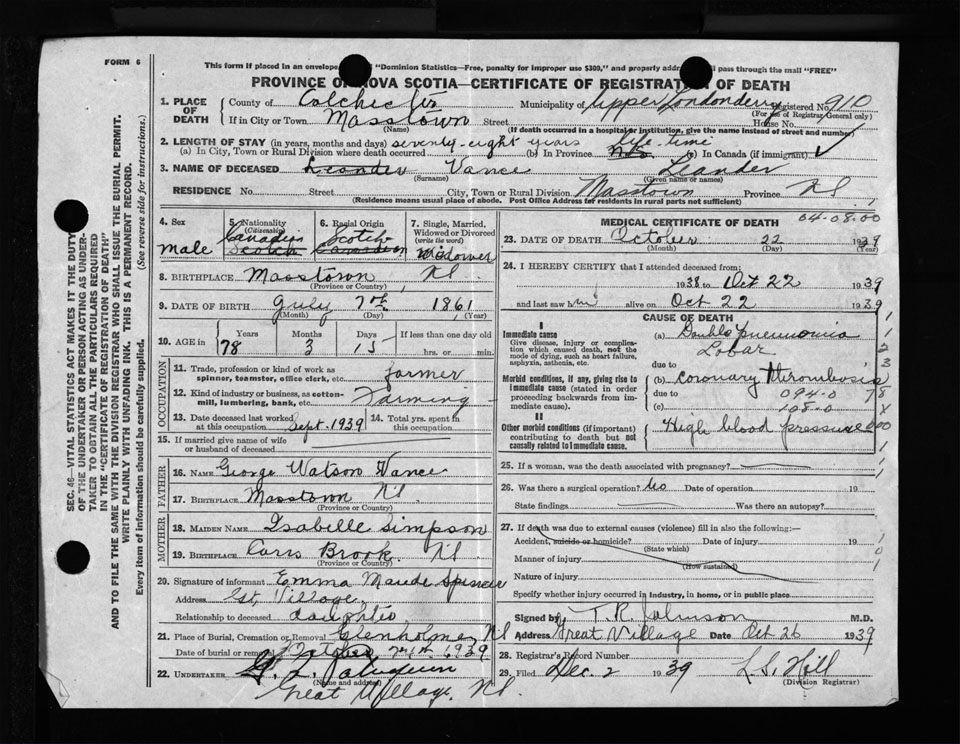 FORM 6
This form if placed in an envelope "Dominion Statistics—Free, penalty for improper use $300," and properly pass through the mail "FREE"
PROVINCE OF NOVA SCOTIA—CERTIFICATE OF REGISTRATION OF DEATH
1. PLACE OF DEATH County of Colchester Municipality of Upper Londonderry Registered No. 910
(For use of Registrar General only)
If in City or Town Masstown Street House No.
(Name) (If death occurred in a hospital or institution, give the name instead of street and number)
2. LENGTH OF STAY (in years, months and days) seventy-eight years life-time
(a) In City, Town or Rural Division where death occurred (b) In Province (c) In Canada (if immigrant)
3. NAME OF DECEASED Leander Vance Leander
(Surname) (Given name or names)
RESIDENCE No. Street City, Town or Rural Division Masstown Province N S
(Residence means usual place of abode. Post Office Address for residents in rural parts not sufficient)
4. Sex male
5. Nationality (Citizenship) Canadian Scotch
6. Racial Origin Scotch Canadian
7. Single, Married, Widowed or Divorced (write the word) Widower
8. BIRTHPLACE Masstown N S
(Province or Country)
9. DATE OF BIRTH July 7th 1861
(Month) (Day) (Year)
10. AGE in Years 78 Months 3 Days 15 If less than one day old hrs. or min.
OCCUPATION
11. Trade, profession or kind of work as spinner, teamster, office clerk, etc. farmer
12. Kind of industry or business, as cotton-mill, lumbering, bank, etc. Farming
13. Date deceased last worked at this occupation Sept. 1939
14. Total yrs. spent in this occupation
15. If married give name of wife or husband of deceased
FATHER
16. NAME George Watson Vance
17. BIRTHPLACE Masstown N S
(Province or Country)
MOTHER
18. MAIDEN NAME Isabelle Simpson
19. BIRTHPLACE Brook N S
(Province or Country)
20. Signature of informant Emma Maude
Address Gt. Village
Relationship to deceased daughter
21. Place of Burial, Cremation or Removal Glenholme, N S
Date of burial or removal October 24th 1939
22. UNDERTAKER
(Name and address)
Great Village, N S.
MEDICAL CERTIFICATE OF DEATH
04-08.00
23. DATE OF DEATH October 22 1939
(Month) (Day) (Year)
24. I HEREBY CERTIFY that I attended deceased from:
1938 to Oct 22 1939
and last saw him alive on Oct 22 1939
CAUSE OF DEATH
I
Immediate cause
Give disease, injury or complication which caused death, not the mode of dying, such as heart failure, asphyxia, asthenia, etc.
(a) Double pneumonia
Lobar
due to
Morbid conditions, if any, giving rise to immediate cause (stated in order proceeding backwards from immediate cause).
(b) coronary thrombosis
due to 094.0
(c) 108.0
II
Other morbid conditions (if important) contributing to death but not causally related to immediate cause.
High blood pressure
25. If a woman, was the death associated with pregnancy?
26. Was there a surgical operation? No Date of operation 19
State findings Was there an autopsy?
27. If death was due to external causes (violence) fill in also the following:—
Accident, suicide or homicide? Date of injury 19
(State which)
Manner of injury
(How sustained)
Nature of injury
Specify whether injury occurred in Industry, in home, or in public place
Signed by T. R. Johnson M.D.
Address Great Village Date Oct 26 1939
28. Registrar's Record Number
29. Filed Dec. 2 1939 L. S. Hill
(Division Registrar)
SEC. 46—VITAL STATISTICS ACT MAKES IT THE DUTY
OF THE UNDERTAKER OR PERSON ACTING AS UNDER-
TAKER TO OBTAIN ALL THE PARTICULARS REQUIRED
IN THE "CERTIFICATE OF REGISTRATION OF DEATH"
AND TO FILE THE SAME WITH THE DIVISION REGISTRAR WHO SHALL ISSUE THE BURIAL PERMIT.
WRITE PLAINLY WITH UNFADING INK. THIS IS A PERMANENT RECORD.
Every item of information should be carefully supplied. (See reverse side for instructions.)